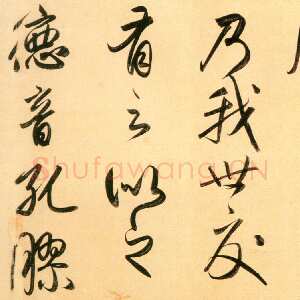 乃我世交
有之似之
德音孔膠
Shufawang.CN